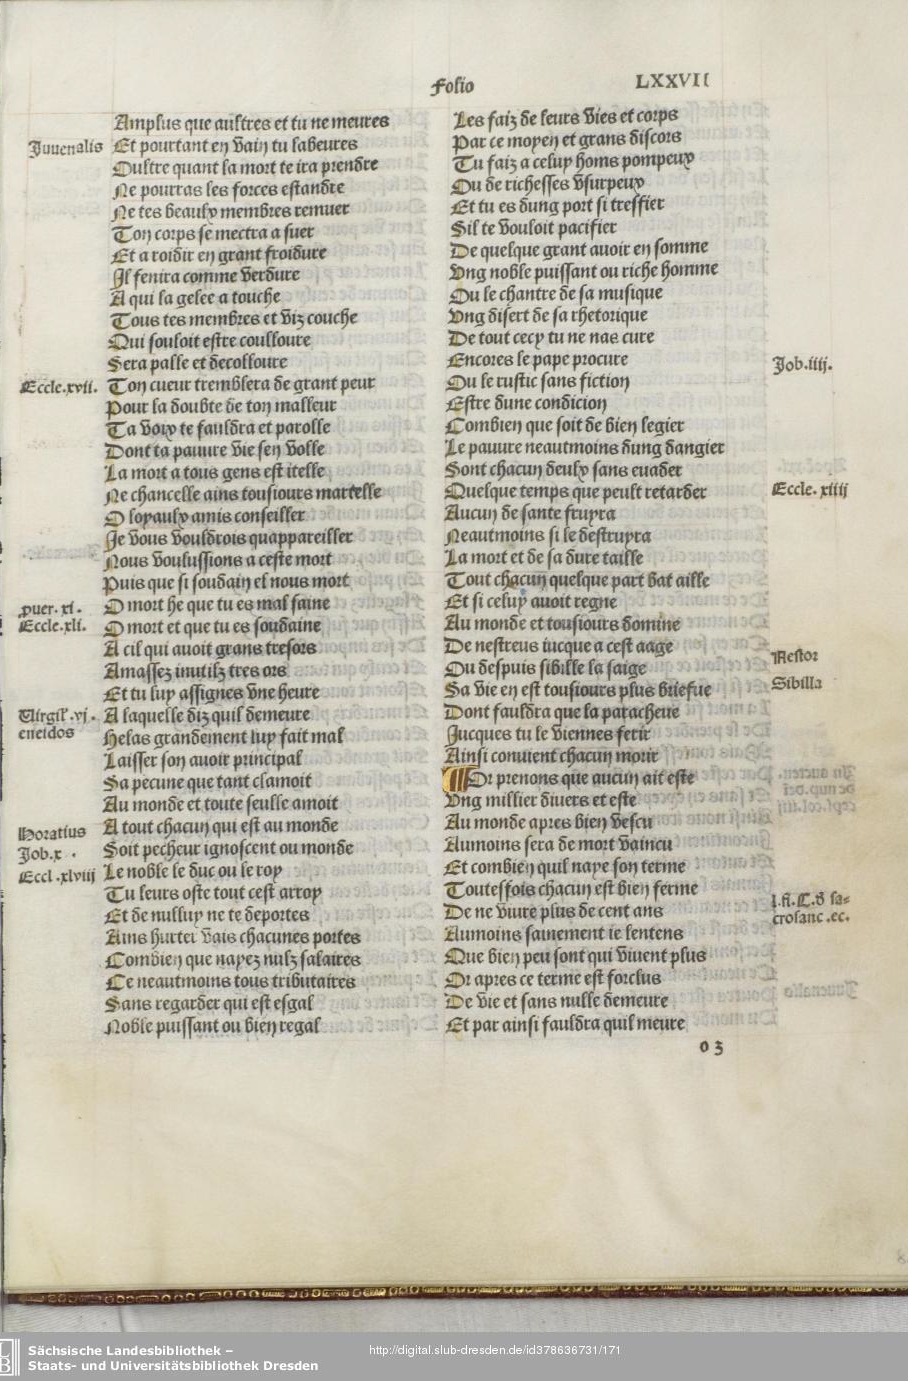 Folio LXXVII
Amplus que aultres et tu ne meures
Juuenalis
Et pourtant en vain tu labeures
Oultre quant la mort te ira prendre
Ne pourras les forces estandre
Ne tes beaulx membres remuer
Ton corps se mectra a suer
Et a roidir en grant froidure
Il fenira comme verdure
A qui la gelee a touche
Tous tes membres et viz couche
Qui souloit estre coulloure
Sera palle et decolloure
Eccle.xvii.
Ton cueur tremblera de grant peur
Pour la doubte de ton malleur
Ta voix te fauldra et parolle
Dont ta pauure vie sen volle
La mort a tous gens est itelle
Ne chancelle ains tousiours martelle
O loyaulx amis conseiller
Je vous vouldrois quappareiller
Nous voulussions a ceste mort
Puis que si soudain el nous mort
puer.xi.
O mort he que tu es mal saine
Eccle.xli.
O mort et que tu es soudaine
A cil qui auoit grans tresors
Amassez inutilz tres ors
Et tu luy assignes vne heure
Virgil'.vj.
eneidos
A laquelle diz quil demeure
Helas grandement luy fait mal
Laisser son auoir principal
Sa pecune que tant clamoit
Au monde et toute seulle amoit
Horatius
A tout chacun qui est au monde
Job.x.
Soit pecheur ignoscent ou monde
Eccl.xlviij
Le noble le duc ou le roy
Tu leurs oste tout cest arroy
Et de nulluy ne te deportes
Ains hurter vais chacunes portes
Combien que nayez nulz salaires
Ce neautmoins tous tributaires
Sans regarder qui est esgal
Noble puissant ou bien regal
Les faiz de leurs vies et corps
Par ce moyen et grans discors
Tu faiz a celuy homs pompeux
Ou de richesses vsurpeux
Et tu es dung port si treffier
Sil te vouloit pacifier
De quelque grant auoir en somme
Vng noble puissant ou riche homme
Ou le chantre de sa musique
Vng disert de sa rhetorique
De tout cecy tu ne nas cure
Encores le pape procure
Job.iiij.
Ou le rustic sans fiction
Estre dune condicion
Combien que soit de bien legier
Le pauure neautmoins dung dangier
Sont chacun deulx sans euader
Quelque temps que peult retarder
Eccle. xiiij
Aucun de sante fruyra
Neautmoins si le destruyra
La mort et de sa dure taille
Tout chacun quelque part bat aille
Et si celuy auoit regne
Au monde et tousiours domine
De nestreus iucque a cest aage
Nestor
Ou despuis sibille la saige
Sibilla
Sa vie en est tousiours plus briefue
Dont fauldra que la paracheue
Jucques tu le viennes ferir
Ainsi conuient chacun morir
Or prenons que aucun ait este
Vng millier diuers et este
Au monde apres bien vescu
Aumoins sera de mort vaincu
Et combien quil naye son terme
Toutesfois chacun est bien ferme
l.fi.C.d sa=
crosanc.ec.
De ne viure plus de cent ans
Aumoins sainement ie lentens
Que bien peu sont qui viuent plus
Or apres ce terme est forclus
De vie et sans nulle demeure
Et par ainsi fauldra quil meure
o 3
Sächsische Landesbibliothek –
Staats- und Universitätsbibliothek Dresden
http://digital.slub-dresden.de/id378636731/171